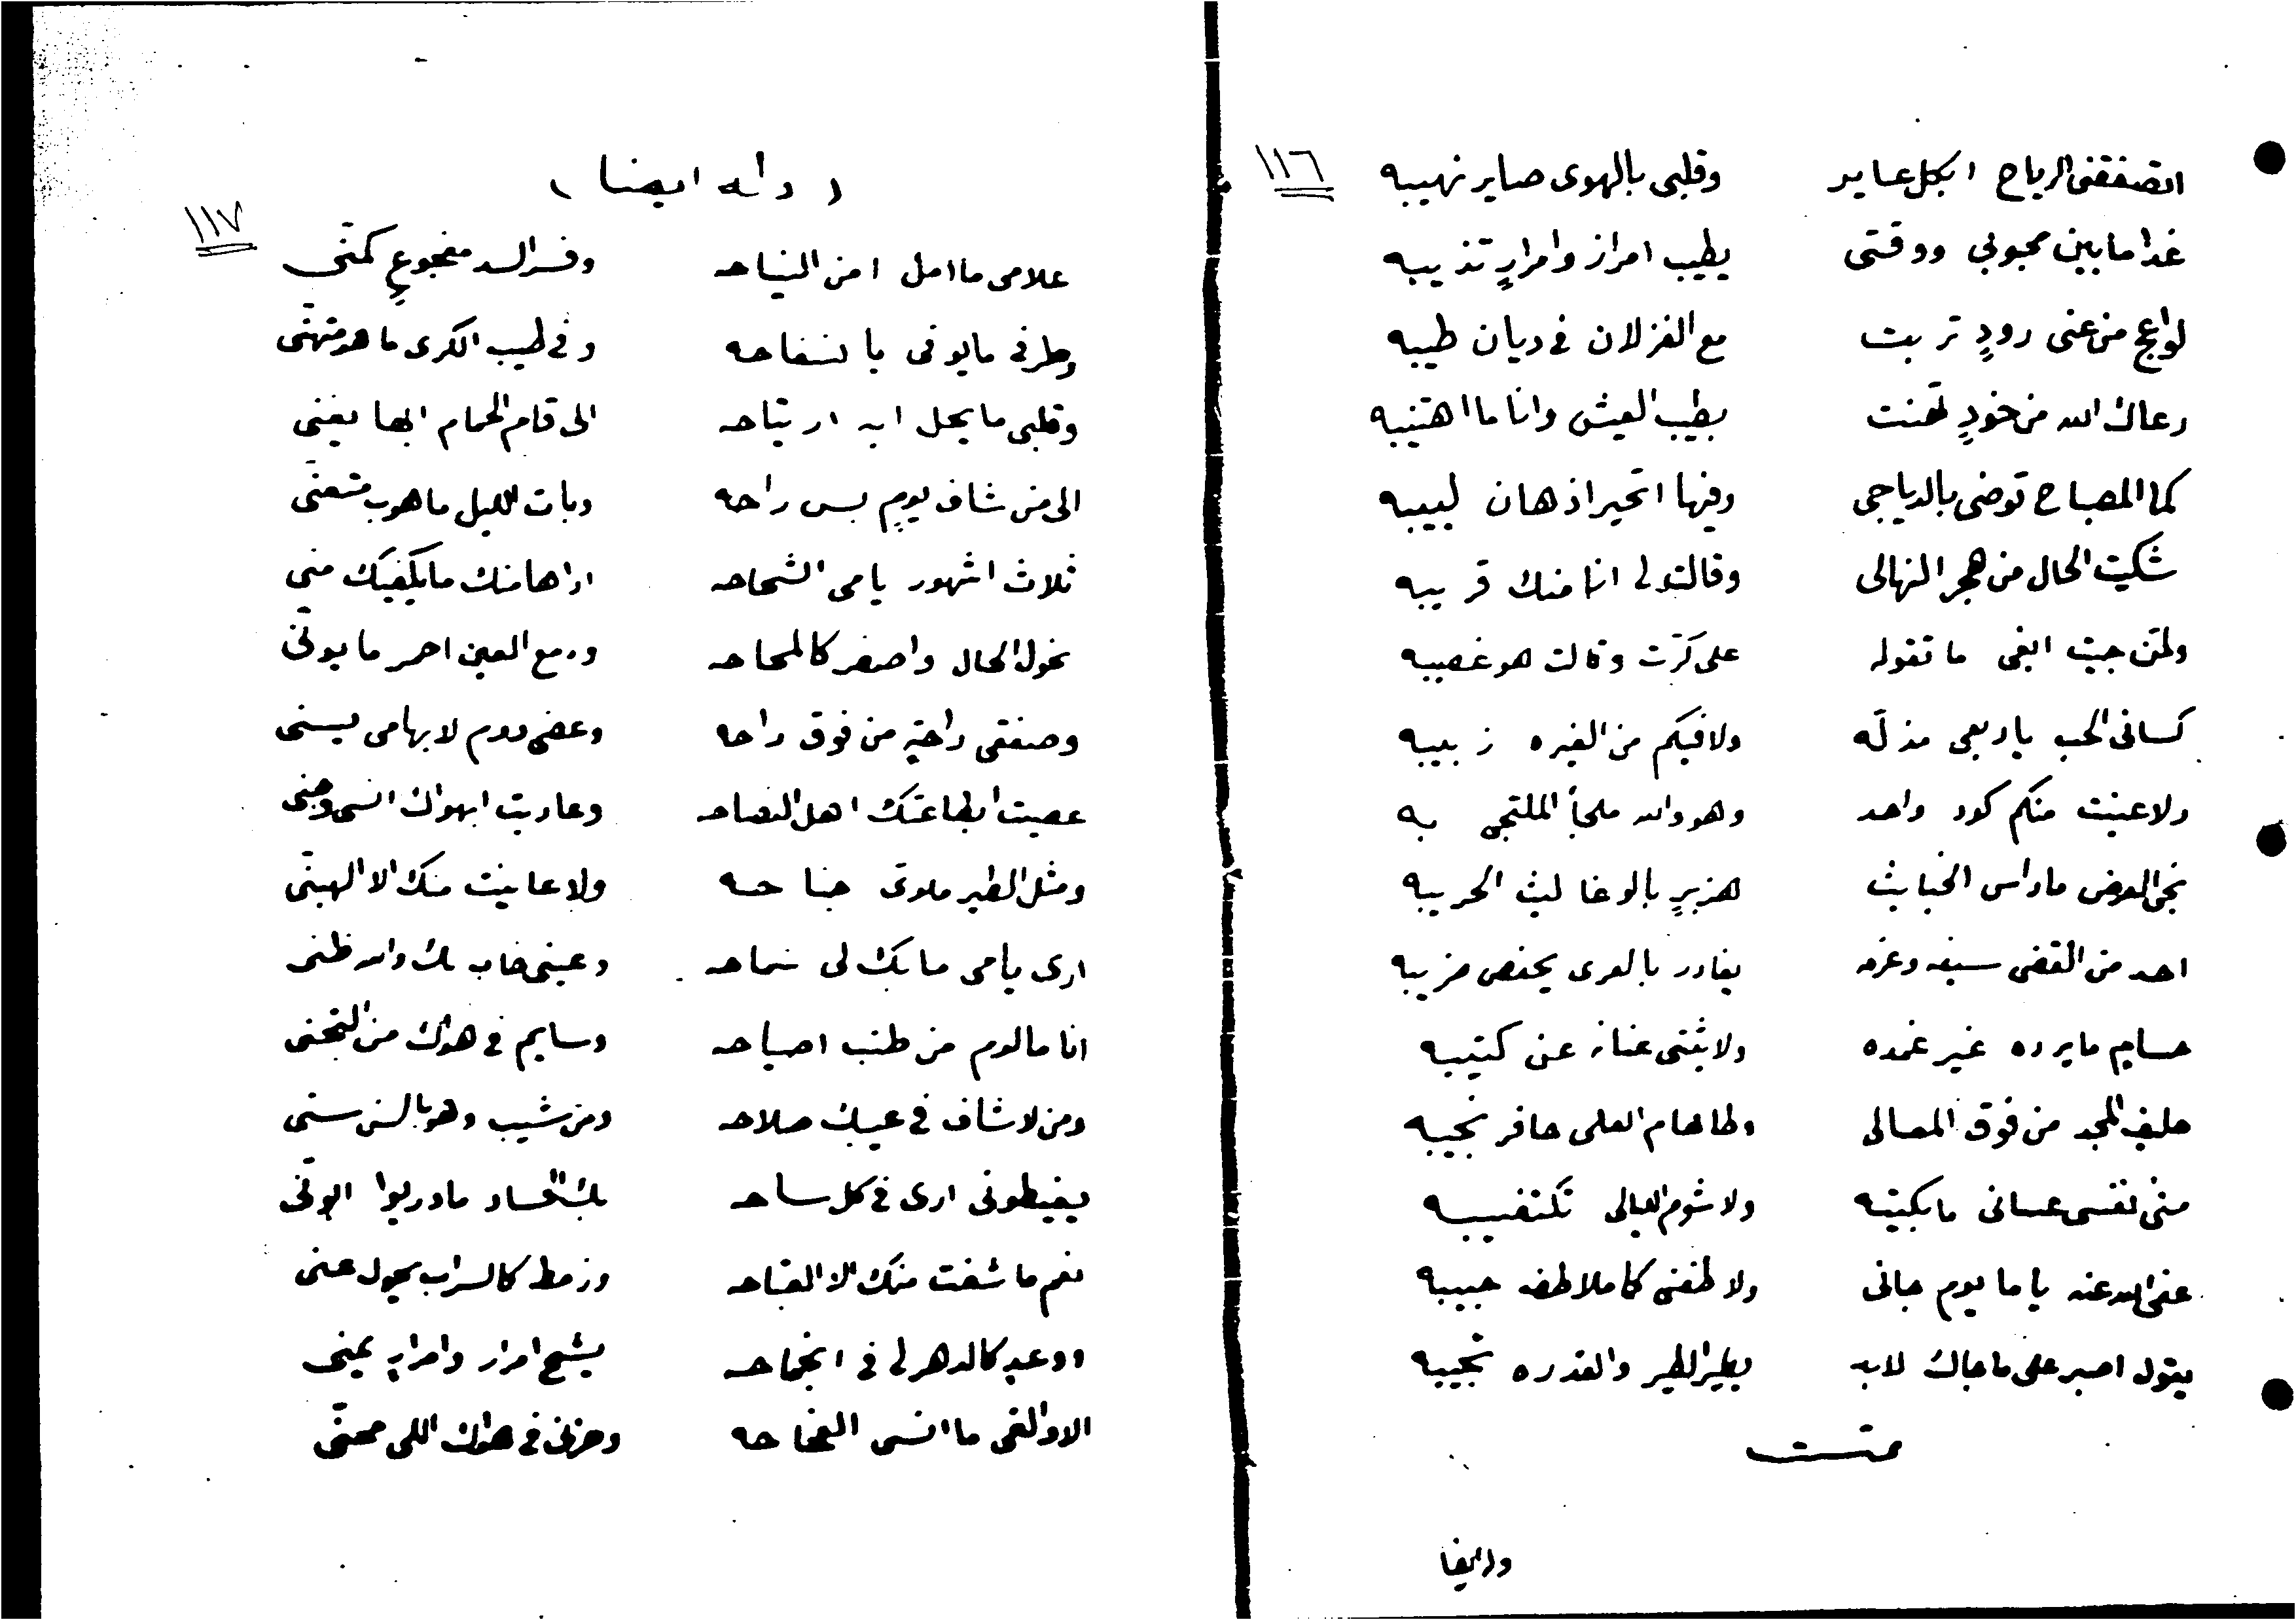 ١١٦
اتصفقني الرياح ابكل عاير وقلبي بالهوى صاير نهيبه
غدا ما بين محبوبي ووقتي يطيب امرار وامرارٍ تذيبه
لواعج من عنى رودٍ تربت مع الغزلان في ديان طيبه
رعاك الله من خودٍ تهنت بطيب العيش وانا ما اهتنيبه
كما المصباح توضي بالدياجي وفيها اتحير اذهان لبيبه
شكيت الحال من هجر النهالى وقالتولى انا منك قريبه
ولمّن جيت ابغي ما تقوله على كرّت وقالت هو غصيبه
كساني الحب يا ربعي مذلّه ولا فيكم من الغيره زبيبه
ولا عنيت منكم كود واحد وهو والله ملجأ الملتجي به
نجي العرض ما داس الخبايث هزبرٍ بالوغا ليث الحريبه
احد من القضى سيفه وعزمه يغادر بالعرى يحفص ضريبه
حسامٍ ما يرده غير غمده ولا يثني عنانه عن كتيبه
حليف المجد من فوق المعالى وطا هام العلى حافر نجيبه
منى نفسي عساني ما بكيته ولا شوم الليالى تكتفيبه
عفى الله عنه ياما يوم جاني ولاطفني كما ملاطفه حبيبه
يقول اصبر على ما جاك لابد يطير الطير والقدره تجيبه
تمت
وله ايضا
( وله ايضا )
١١٧
علامي ما امل امن النياحه وفسر السد مفجوعٍ كمنّي
وطرفي ما يوني بالسفاحه وفي طيب الكرى ما هو متهنّي
وقلبي ما يحل ابه ارتياحه الى قام الحمام ابها يغني
الى من شاف يومٍ بس راحه وبات الليل ما هوب متعنّي
ثلاث اشهور يا مي الشحاحه اراها منك ما يكفيك منّي
نحول الحال واصفر كالمحاحه ودمع العين احمر ما يونّي
وصفقي راحةٍ من فوق راحه وعضي دوم لابهامي بسني
عصيت ابطاعتك اهل النصاحه وعاديت ابهواك انسي وجني
ومثل الطير ملوي جناحه ولا عاينت منك الا الهبنّي
ارى يا مي ما بك لي سماحه وعيني خاب بك والله ظني
انا مالوم من طنب اصياحه وسايم في هواك من التجني
ومن لا شاف في عيبك صلاحه ومن شيب وهو بالسن سني
يغيطوني ارى في كل ساحه بك الحساد ما دريوا ابونّي
نعم ما شفت منك الا القباحه وزمط كالسراب يحول عني
ووعدٍ كالدهر لى في انجاحه يشح امرار وامرارٍ يمني
الا والقى ما انسى الفجاحه وحزني في هواك اللى محنّي